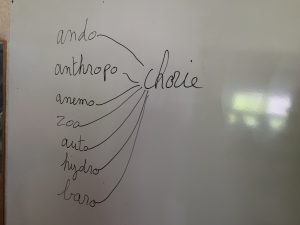 ando
anthropo
chorie
anemo
zoo
auto
hydro
baro